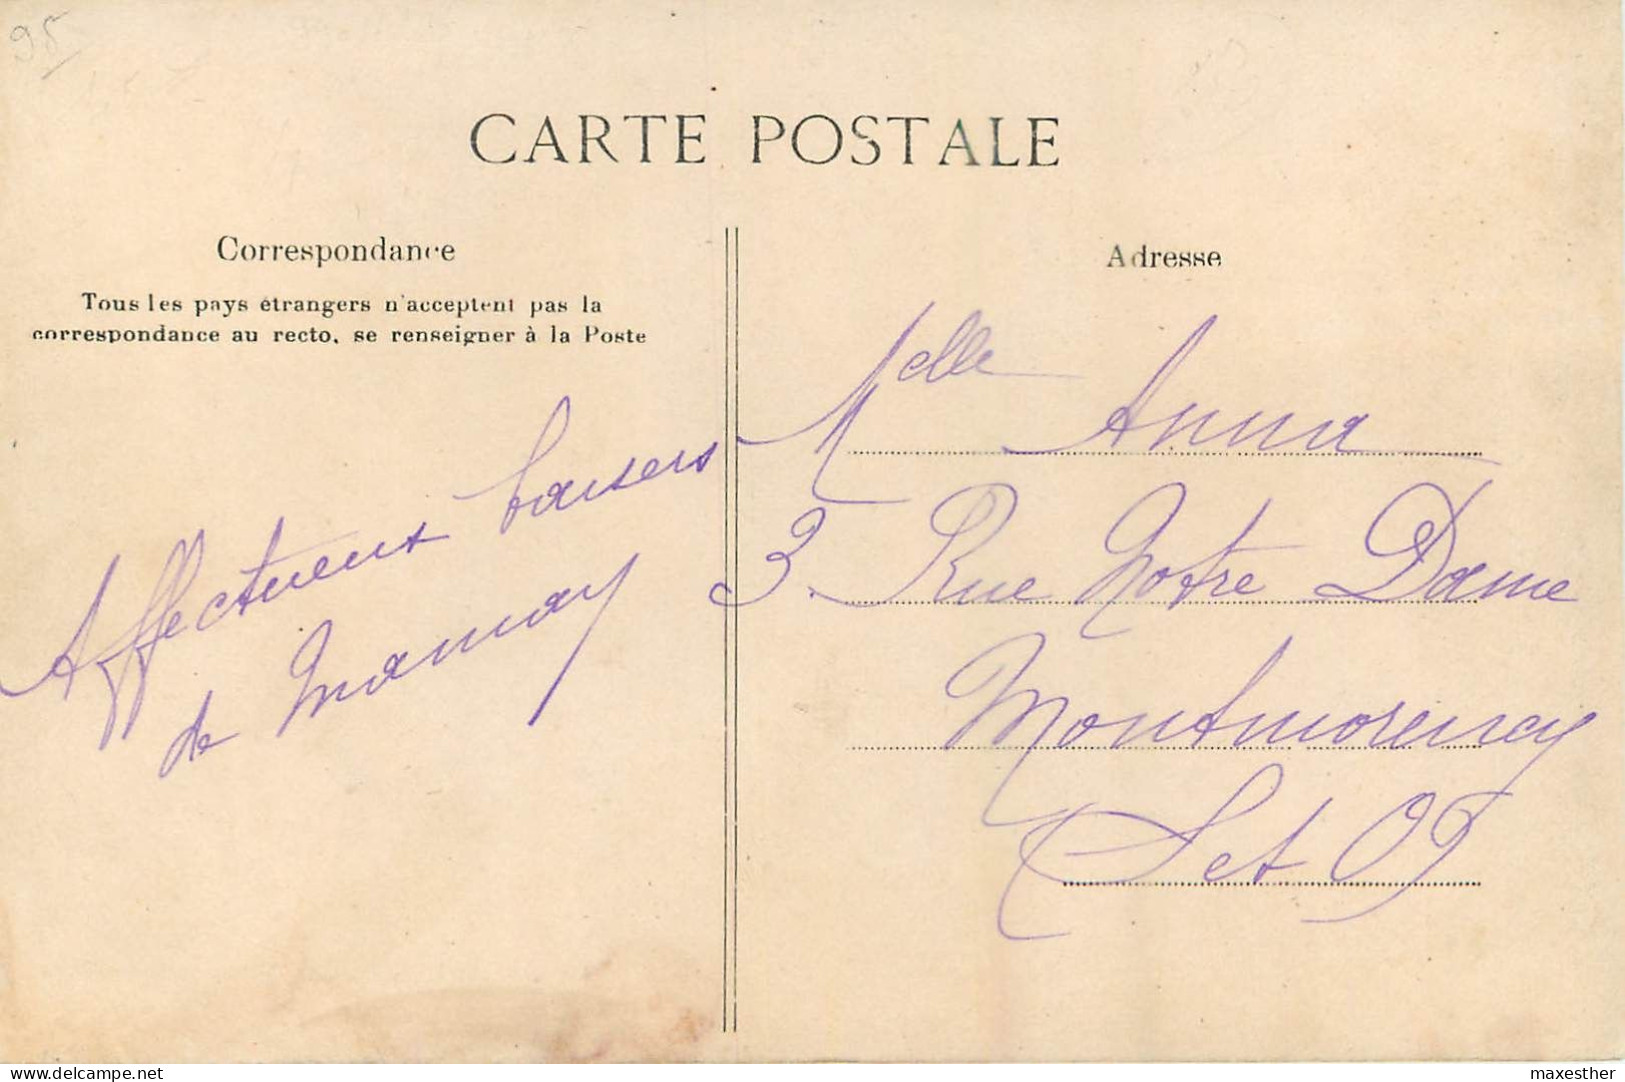 95
CARTE POSTALE
Correspondance
Tous les pays étrangers n'acceptent pas la
correspondance au recto, se renseigner à la Poste
Affectueux baisers
de Mamay
Adresse
Melle Anna
3. Rue Notre Dame
Montmorency
Set O
delcampe.net
maxesther